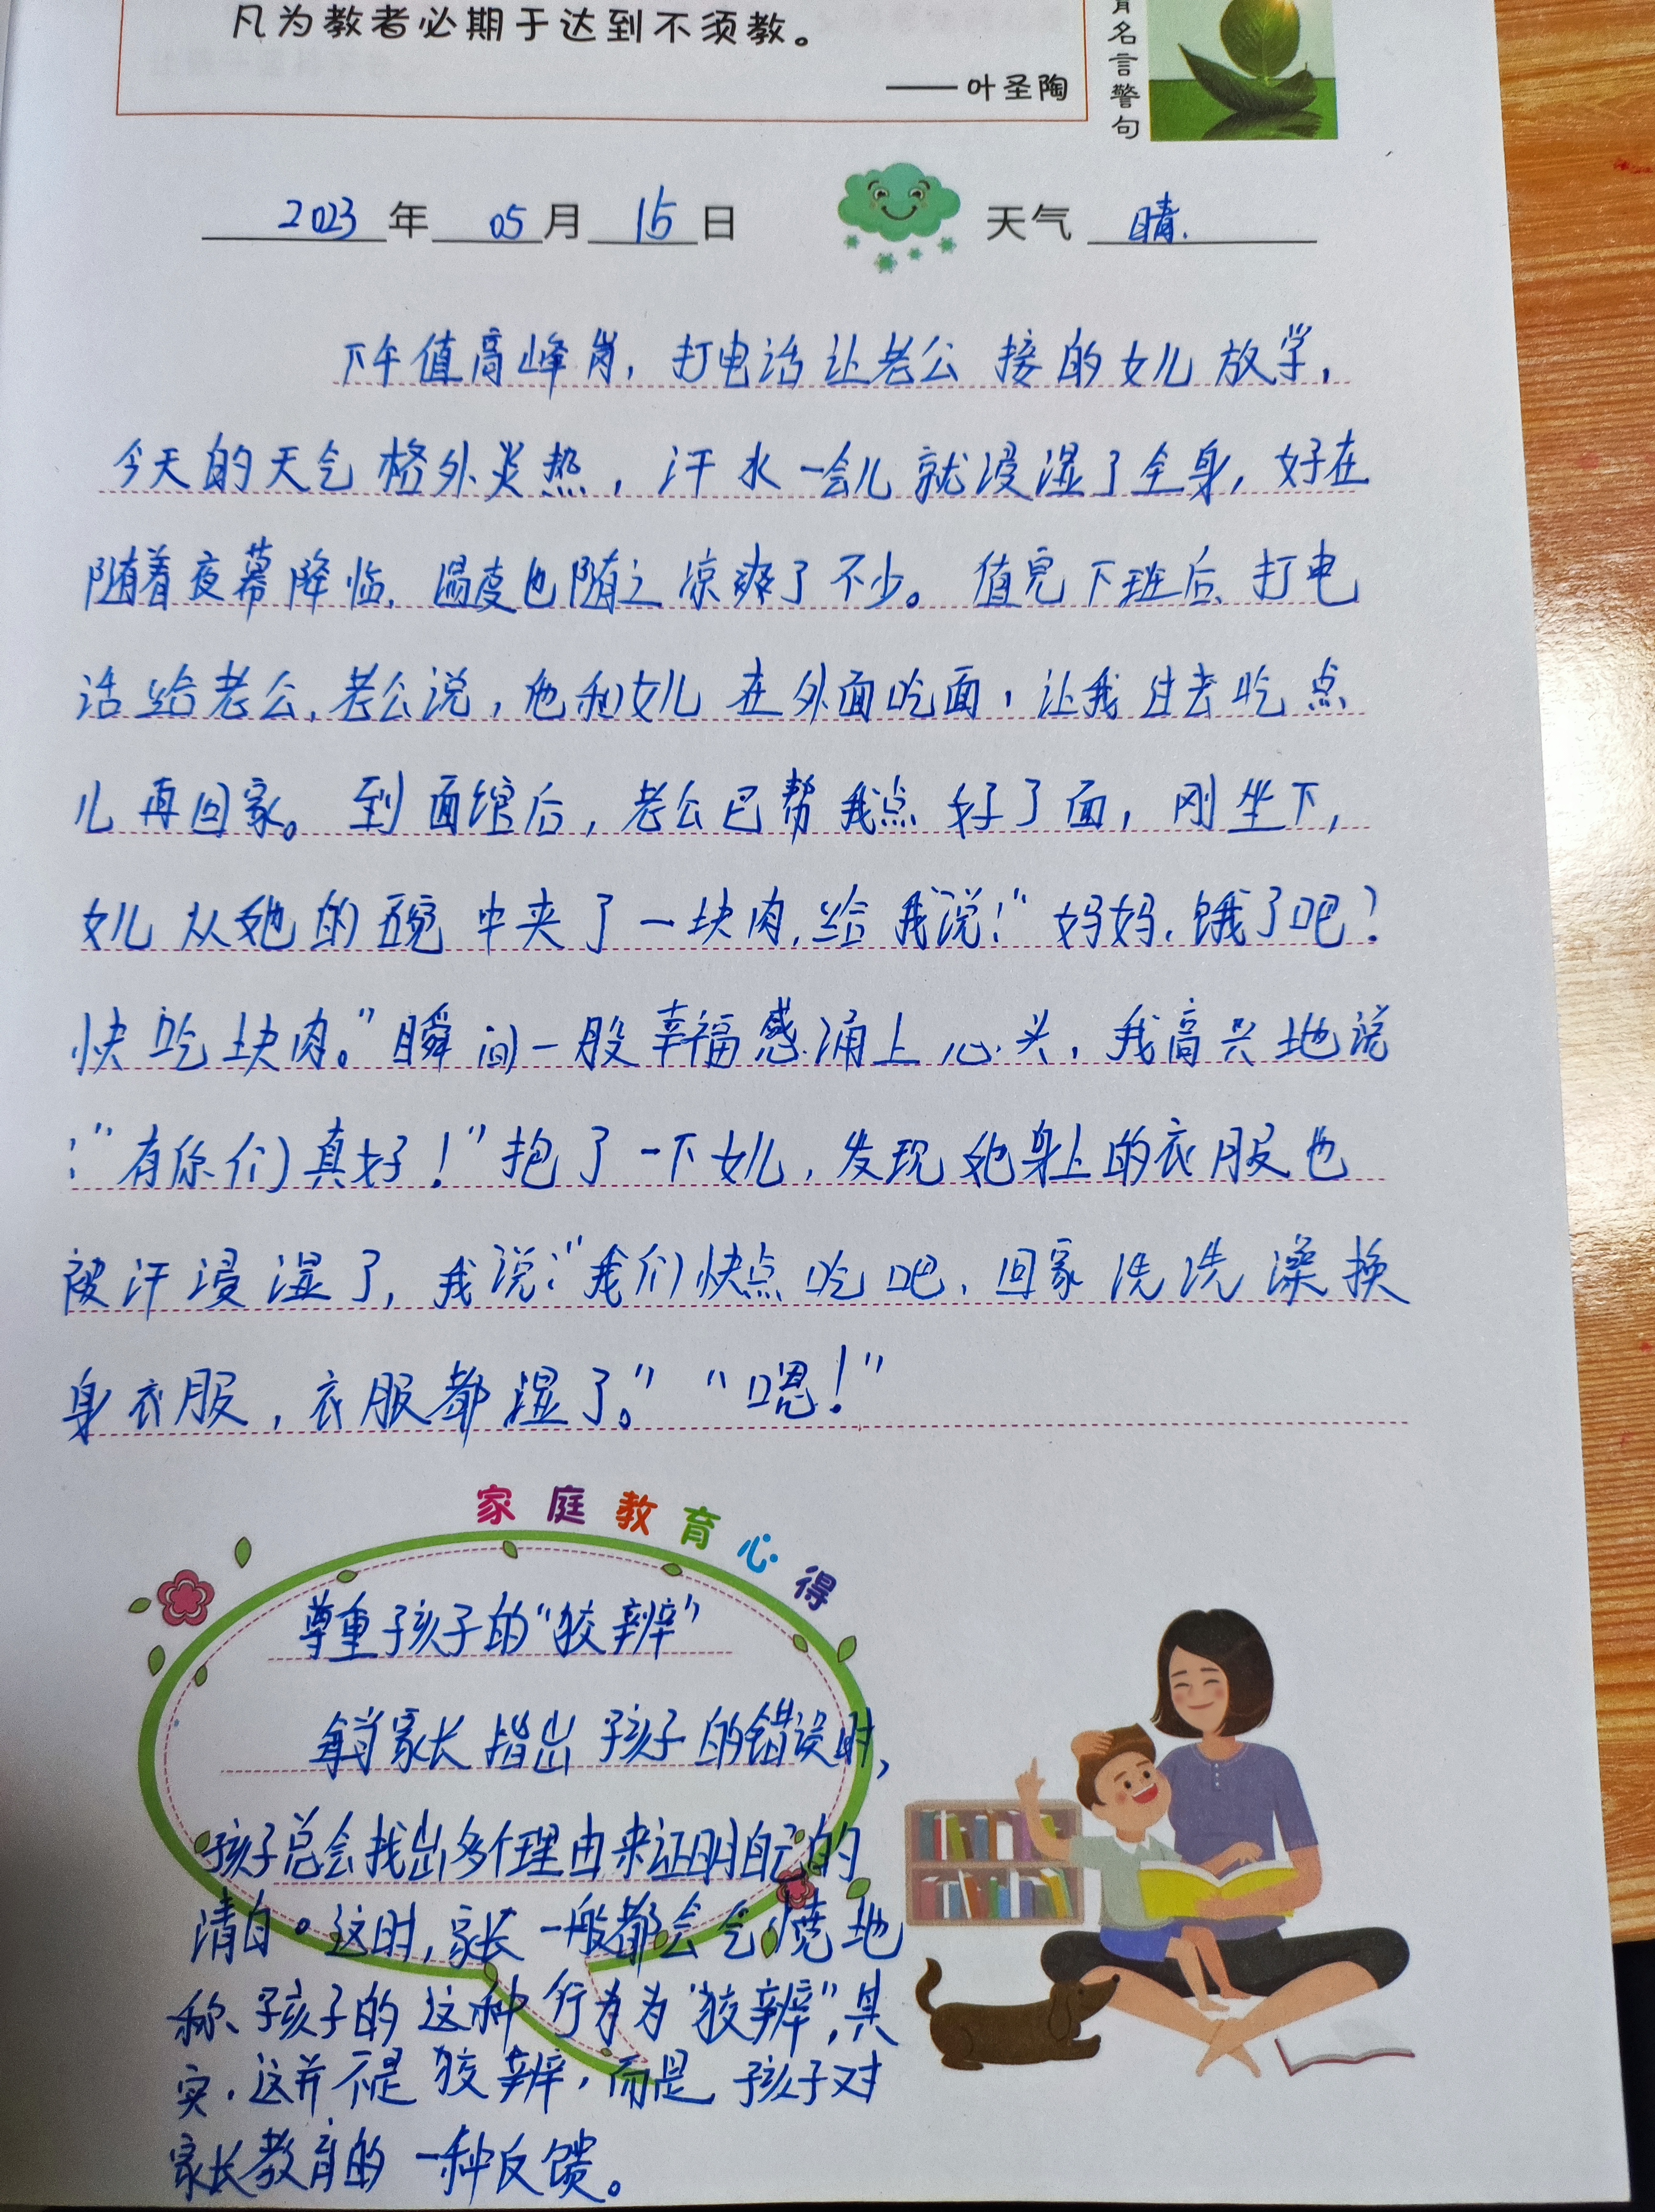 凡为教者必期于达到不须教。
——叶圣陶
育名言警句
2023年05月15日 天气 晴.
下午值高峰岗,打电话让老公接的女儿放学,
今天的天气格外炎热,汗水一会儿就浸湿了全身,好在
随着夜幕降临,温度也随之凉爽了不少。值完下班后,打电
话给老公,老公说,他和女儿在外面吃面,让我过去吃点
儿再回家。到面馆后,老公已帮我点好了面,刚坐下,
女儿从她的碗中夹了一块肉,给我说:“妈妈,饿了吧?
快吃块肉。”瞬间一股幸福感涌上心头,我高兴地说
:“有你们真好!”抱了一下女儿,发现她身上的衣服也
被汗浸湿了,我说:“我们快点吃吧,回家洗洗澡换
身衣服,衣服都湿了。”“嗯!”
家庭教育心得
尊重孩子的“狡辨”
每当家长指出孩子的错误时,
孩子总会找出多个理由来证明自己的
清白。这时,家长一般都会气愤地
称、孩子的这种行为为“狡辨”,其
实,这并不是狡辨,而是孩子对
家长教育的一种反馈。